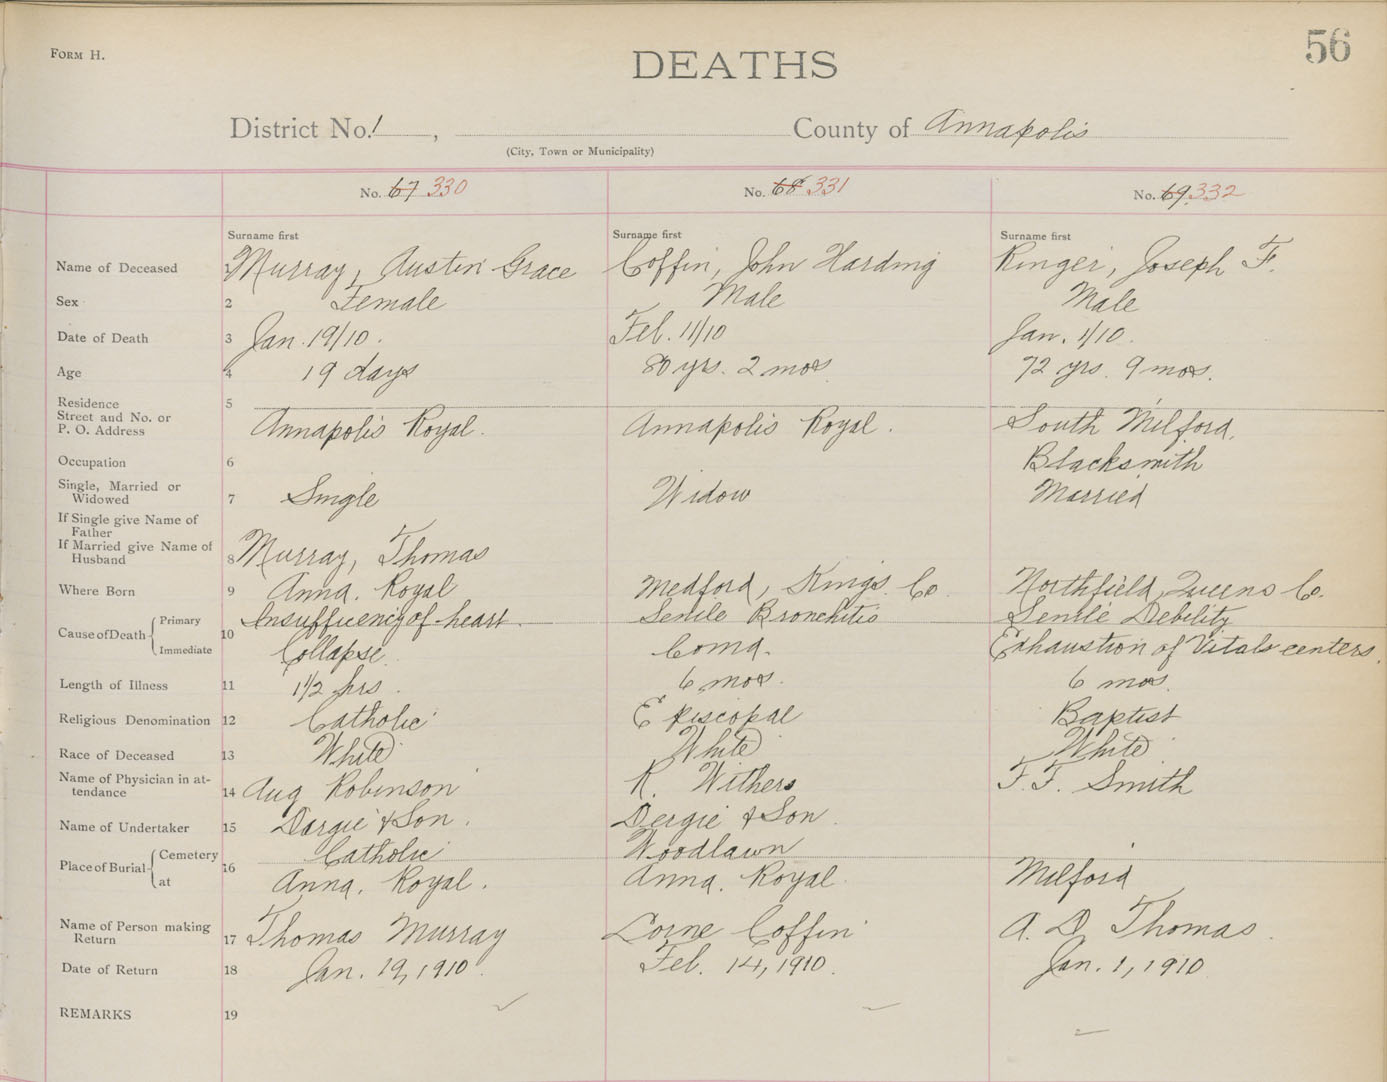 FORM H.
DEATHS
56
District No. 1, County of Annapolis
(City, Town or Municipality)
No. 67 330 No. 68 331 No. 69. 332
Surname first Surname first Surname first
Name of Deceased 1 Murray, Austin Grace Coffin, John Harding Ringer, Joseph F.
Sex 2 Female Male Male
Date of Death 3 Jan. 19/10. Feb. 11/10 Jan. 1/10.
Age 4 19 days 80 yrs. 2 mos 72 yrs. 9 mos.
Residence 5
Street and No. or
P. O. Address Annapolis Royal. Annapolis Royal. South Milford.
Occupation 6 Blacksmith
Single, Married or
Widowed 7 Single Widow Married
If Single give Name of
Father
If Married give Name of
Husband 8 Murray, Thomas
Where Born 9 Anna. Royal Medford, Kings Co Northfield, Queens Co.
Cause of Death Primary 10 Insufficiency of heart. Senile Bronchitis Senile Debility
Immediate Collapse. Coma. Exhaustion of Vitals centers.
Length of Illness 11 1 1/2 hrs. 6 mos. 6 mos.
Religious Denomination 12 Catholic Episcopal Baptist
Race of Deceased 13 White White White
Name of Physician in at-
tendance 14 Aug Robinson R. Withers F. F. Smith
Name of Undertaker 15 Dargie & Son. Dergie & Son.
Place of Burial Cemetery 16 Catholic Woodlawn
at Anna. Royal. Anna. Royal. Milford
Name of Person making
Return 17 Thomas Murray Lorne Coffin A. D. Thomas.
Date of Return 18 Jan. 19, 1910. Feb. 14, 1910. Jan. 1, 1910
REMARKS 19